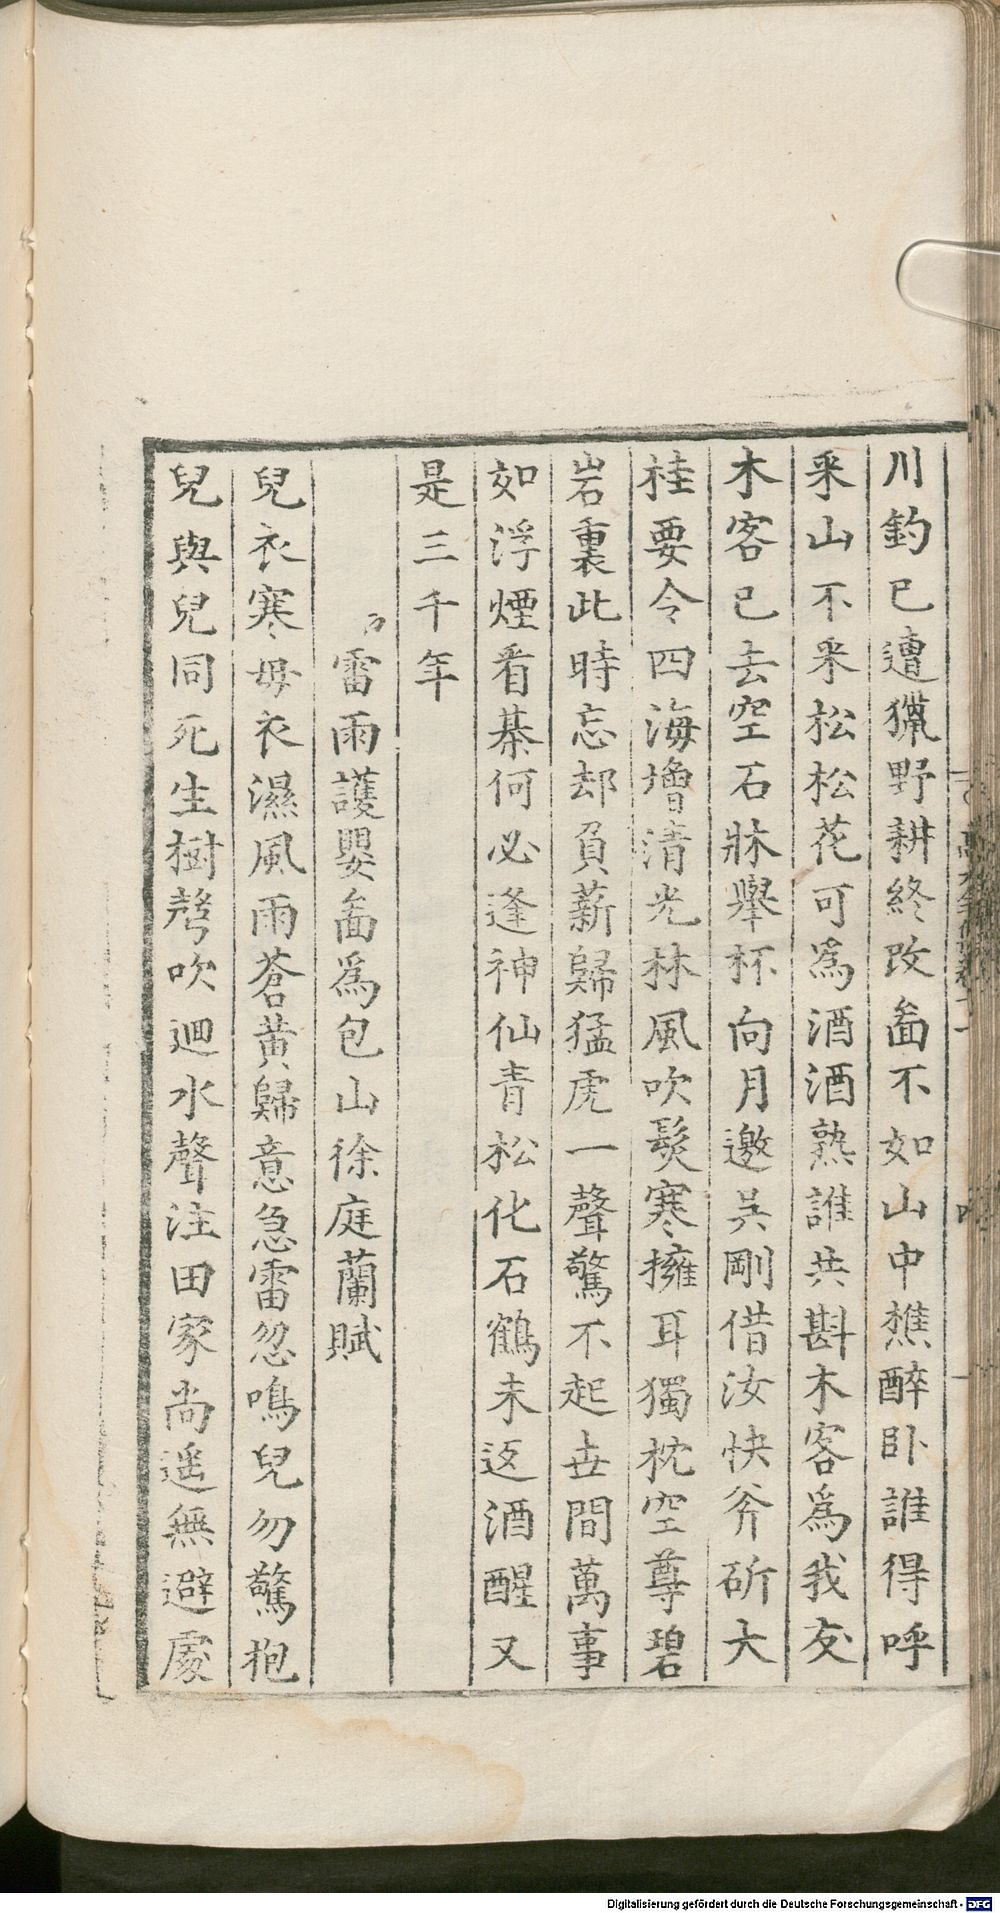 川釣已遭獵野耕終改啚不如山中樵醉卧誰得呼
采山不采松松花可爲酒酒熟誰共斟木客爲我友
木客已去空石牀舉杯向月邀吴剛借汝快斧斫大
桂要令四海增清光林風吹髮寒擁耳獨枕空尊碧
岩裏此時忘却負薪歸猛虎一聲驚不起世間萬事
如浮煙看棊何必逢神仙青松化石鶴未返酒醒又
是三千年
雷雨護嬰啚爲包山徐庭蘭賦
兒衣寒毋衣濕風雨蒼黄歸意急雷忽鳴兒勿驚抱
兒與兒同死生樹聲吹迴水聲注田家尚遥無避處
Digitalisierung gefördert durch die Deutsche Forschungsgemeinschaft - DFG